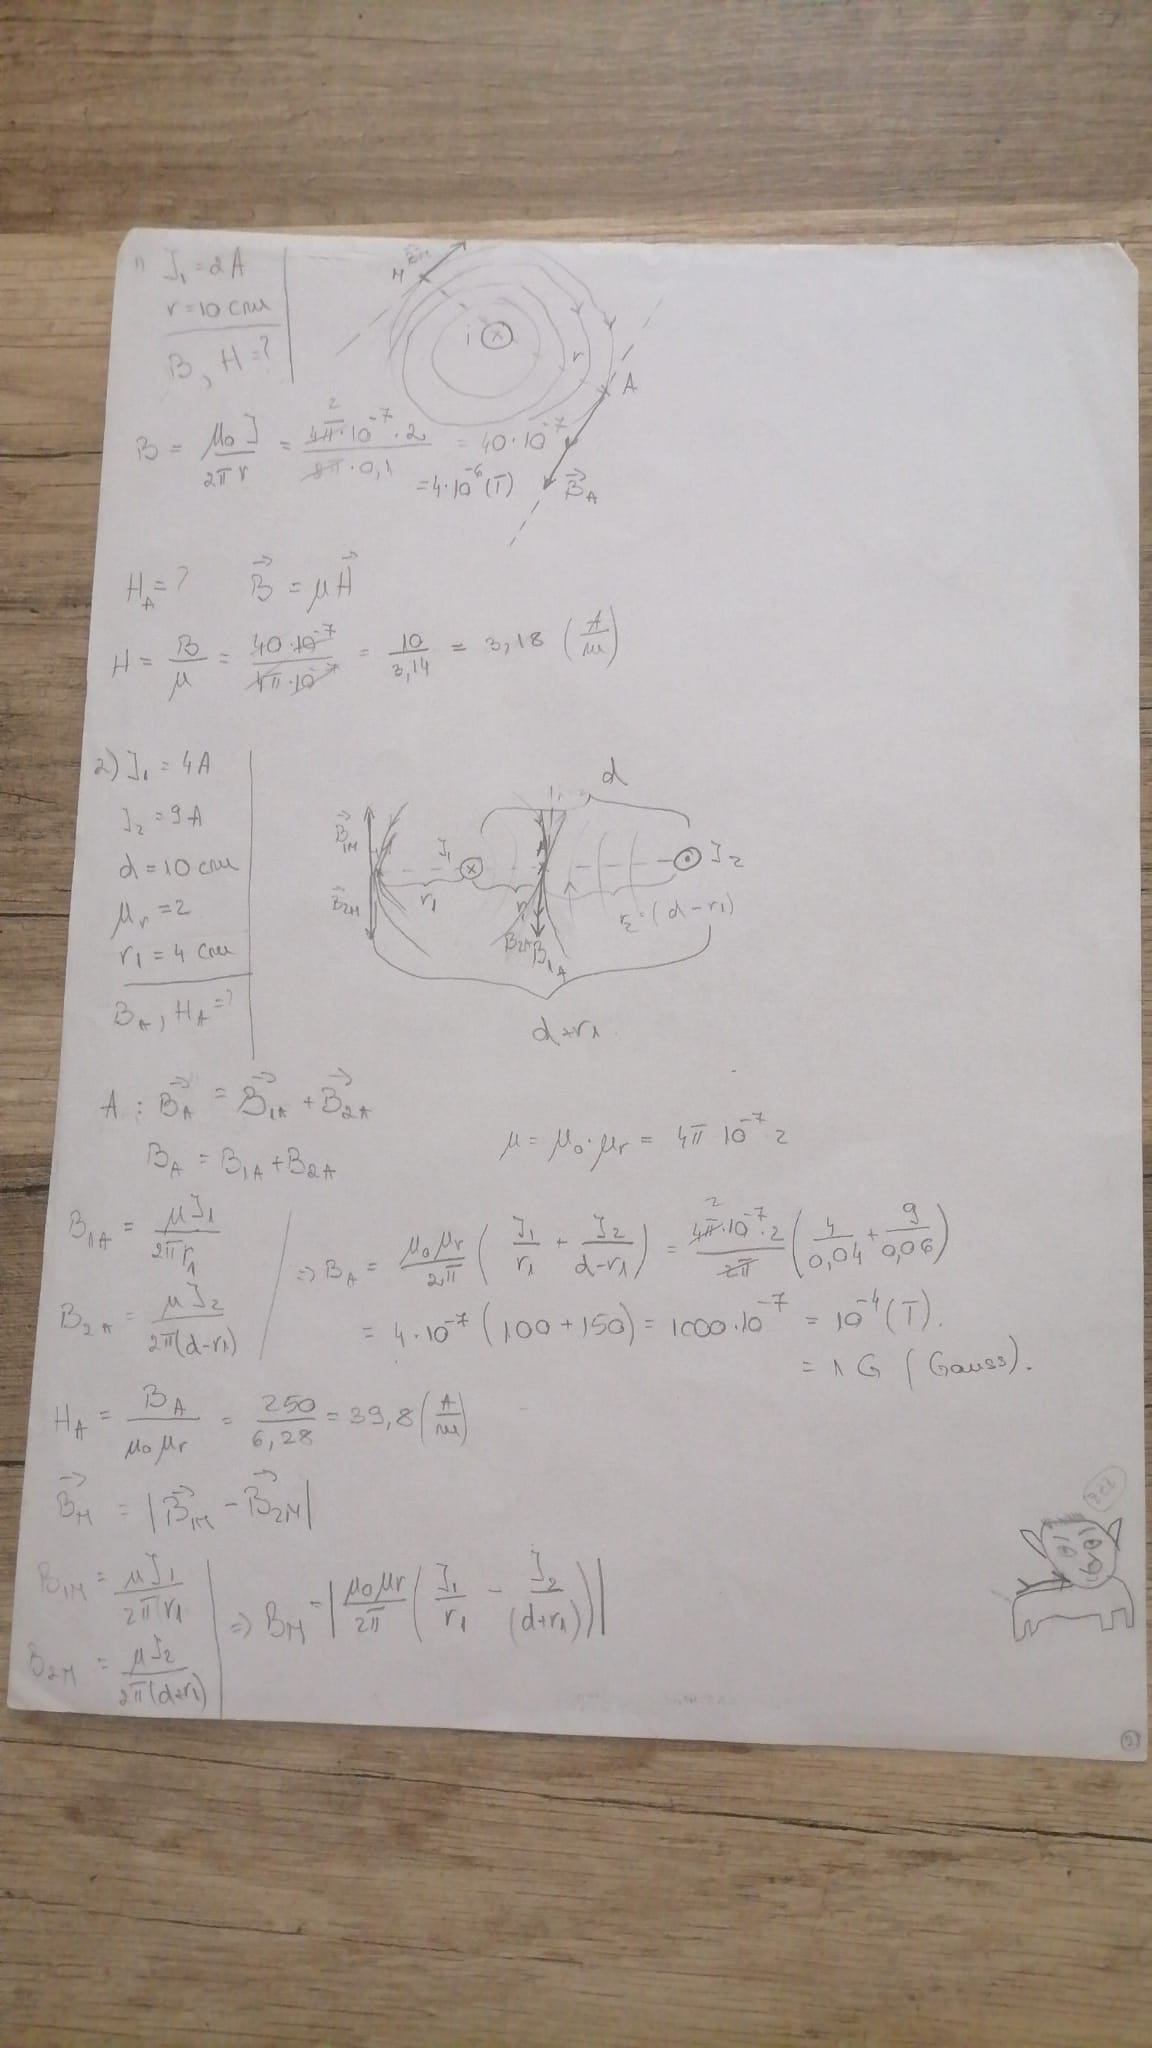 1) I₁ = 2A
r = 10 cm
B, H = ?
M B⃗M
i
r
A
B⃗A
B = μ₀I / 2πr = 4π·10⁻⁷·2 / 2π·0,1 = 40·10⁻⁷
2
= 4·10⁻⁶ (T)
H_A = ? B⃗ = μH⃗
H = B/μ = 40·10⁻⁷ / 4π·10⁻⁷ = 10/3,14 = 3,18 (A/m)
2) I₁ = 4A
I₂ = 9A
d = 10 cm
μr = 2
r₁ = 4 cm
B_A, H_A = ?
d
B⃗₁M
I₁
I₂
B⃗₂M
r₁
r₁
r₂ = (d - r₁)
B₂A
B₁A
d+r₁
A: B⃗A = B⃗₁A + B⃗₂A
μ = μ₀·μr = 4π 10⁻⁷ 2
B_A = B₁A + B₂A
B₁A = μI₁ / 2πr₁
B₂A = μI₂ / 2π(d-r₁)
=> B_A = μ₀μr / 2π (I₁/r₁ + I₂/(d-r₁)) = 4π·10⁻⁷·2 / 2π (4/0,04 + 9/0,06)
2
= 4·10⁻⁷ (100 + 150) = 1000·10⁻⁷ = 10⁻⁴ (T).
= 1 G (Gauss).
H_A = B_A / μ₀μr = 250 / 6,28 = 39,8 (A/m)
B⃗M = |B⃗₁M - B⃗₂M|
B₁M = μI₁ / 2π(r₁
B₂M = μI₂ / 2π(d+r₁)
=> B_M = |μ₀μr / 2π (I₁/r₁ - I₂/(d+r₁))|
2